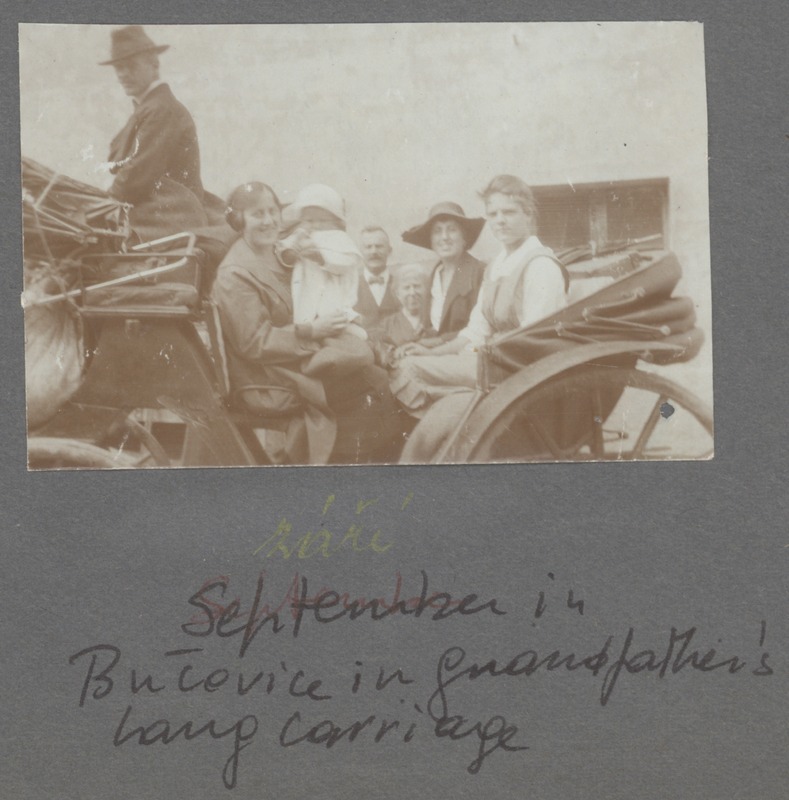 září
September in
Bučovice in grandfather's
hang carriage